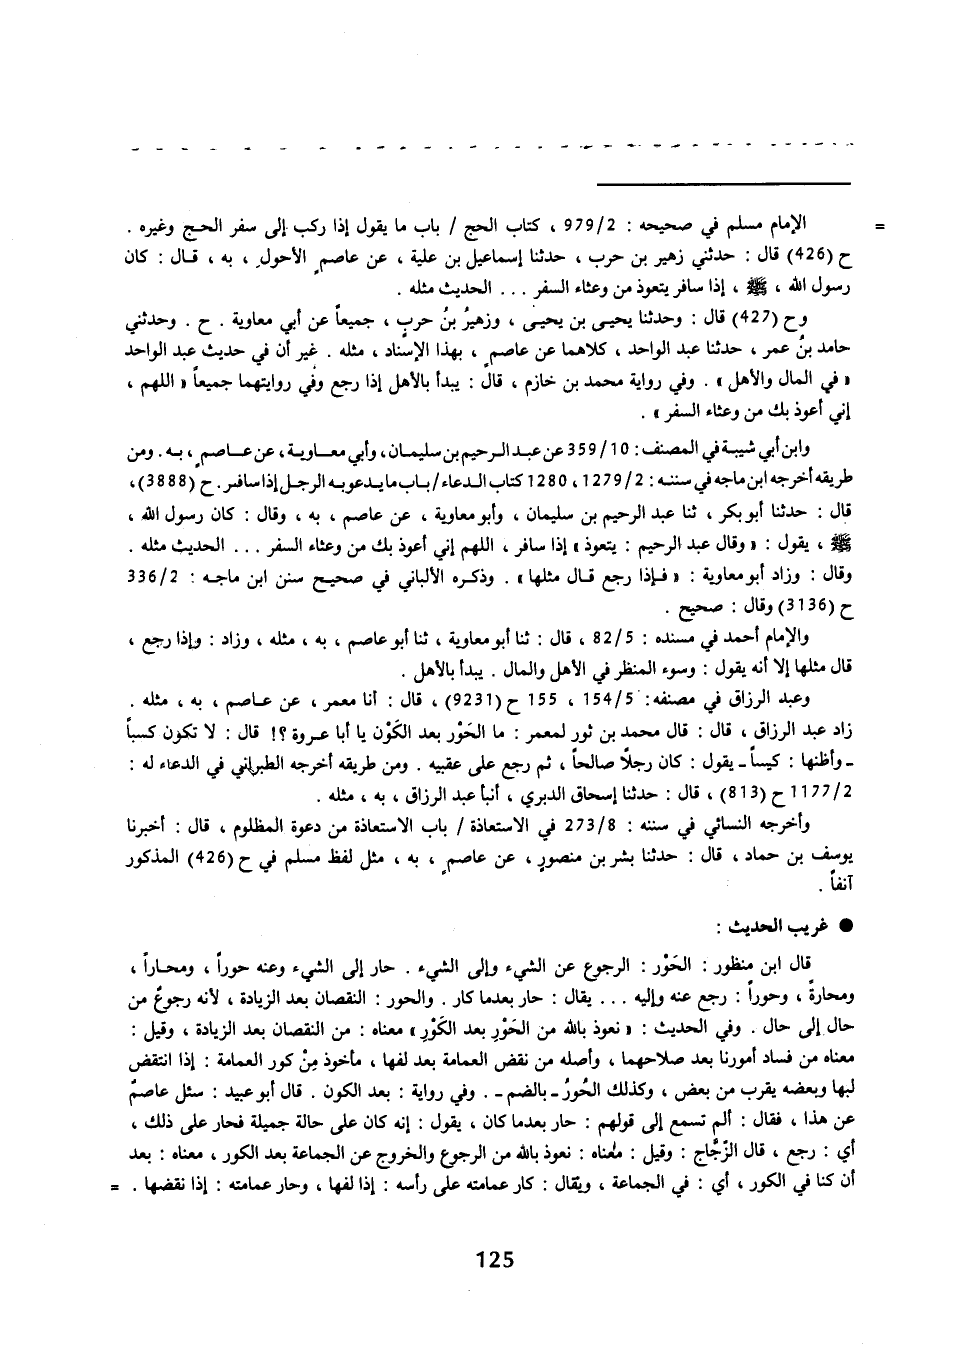 = الإمام مسلم في صحيحه : 979/2 ، كتاب الحج / باب ما يقول إذا ركب إلى سفر الحج وغيره .
ح (426) قال : حدثني زهير بن حرب ، حدثنا إسماعيل بن علية ، عن عاصمٍ الأحول ، به ، قال : كان
رسول الله ، ﷺ ، إذا سافر يتعوذ من وعثاء السفر . . . الحديث مثله .
وح (427) قال : وحدثنا يحيى بن يحيى ، وزهيرُ بنُ حربٍ ، جميعاً عن أبي معاوية . ح . وحدثني
حامد بنُ عمر ، حدثنا عبد الواحد ، كلاهما عن عاصمٍ ، بهذا الإسناد ، مثله . غير أن في حديث عبد الواحد
« في المال والأهل » . وفي رواية محمد بن خازم ، قال : يبدأ بالأهل إذا رجع وفي روايتهما جميعاً « اللهم ،
إني أعوذ بك من وعثاء السفر » .
وابن أبي شيبة في المصنف : 359/10 عن عبد الرحيم بن سليمان ، وأبي معاوية ، عن عاصمٍ ، به . ومن
طريقه أخرجه ابن ماجه في سننه : 1279/2 ، 1280 كتاب الدعاء / باب ما يدعو به الرجل إذا سافر . ح (3888) ،
قال : حدثنا أبو بكر ، ثنا عبد الرحيم بن سليمان ، وأبو معاوية ، عن عاصم ، به ، وقال : كان رسول الله ،
ﷺ ، يقول : « وقال عبد الرحيم : يتعوذ » إذا سافر ، اللهم إني أعوذ بك من وعثاء السفر . . . الحديث مثله .
وقال : وزاد أبو معاوية : « فإذا رجع قال مثلها » . وذكره الألباني في صحيح سنن ابن ماجه : 336/2
ح (3136) وقال : صحيح .
والإمام أحمد في مسنده : 82/5 ، قال : ثنا أبو معاوية ، ثنا أبو عاصم ، به ، مثله ، وزاد : وإذا رجع ،
قال مثلها إلا أنه يقول : وسوء المنظر في الأهل والمال . يبدأ بالأهل .
وعبد الرزاق في مصنفه : 154/5 ، 155 ح (9231) ، قال : أنا معمر ، عن عاصم ، به ، مثله .
زاد عبد الرزاق ، قال : قال محمد بن ثور لمعمر : ما الحَوْر بعد الكَوْن يا أبا عروة ؟! قال : لا تكون كسباً
ـ وأظنها : كيساً ـ يقول : كان رجلاً صالحاً ، ثم رجع على عقبيه . ومن طريقه أخرجه الطبراني في الدعاء له :
1177/2 ح (813) ، قال : حدثنا إسحاق الدبري ، أنبأ عبد الرزاق ، به ، مثله .
وأخرجه النسائي في سننه : 273/8 في الاستعاذة / باب الاستعاذة من دعوة المظلوم ، قال : أخبرنا
يوسف بن حماد ، قال : حدثنا بشر بن منصورٍ ، عن عاصمٍ ، به ، مثل لفظ مسلم في ح (426) المذكور
آنفاً .
● غريب الحديث :
قال ابن منظور : الحَوْر : الرجوع عن الشيء وإلى الشيء . حار إلى الشيء وعنه حوراً ، ومحاراً ،
ومحارةً ، وحوراً : رجع عنه وإليه . . . يقال : حار بعدما كار . والحور : النقصان بعد الزيادة ، لأنه رجوعٌ من
حال إلى حال . وفي الحديث : « نعوذ بالله من الحَوْرِ بعد الكَوْرِ » معناه : من النقصان بعد الزيادة ، وقيل :
معناه من فساد أمورنا بعد صلاحهما ، وأصله من نقض العمامة بعد لفها ، مأخوذ مِنْ كور العمامة : إذا انتقض
لبها وبعضه يقرب من بعض ، وكذلك الحُورُ ـ بالضم ـ . وفي رواية : بعد الكون . قال أبو عبيد : سئل عاصمٌ
عن هذا ، فقال : ألم تسمع إلى قولهم : حار بعدما كان ، يقول : إنه كان على حالة جميلة فحار على ذلك ،
أي : رجع ، قال الزّجّاج : وقيل : معناه : نعوذ بالله من الرجوع والخروج عن الجماعة بعد الكور ، معناه : بعد
أن كنا في الكور ، أي : في الجماعة ، ويقال : كار عمامته على رأسه : إذا لفها ، وحار عمامته : إذا نقضها . =
125